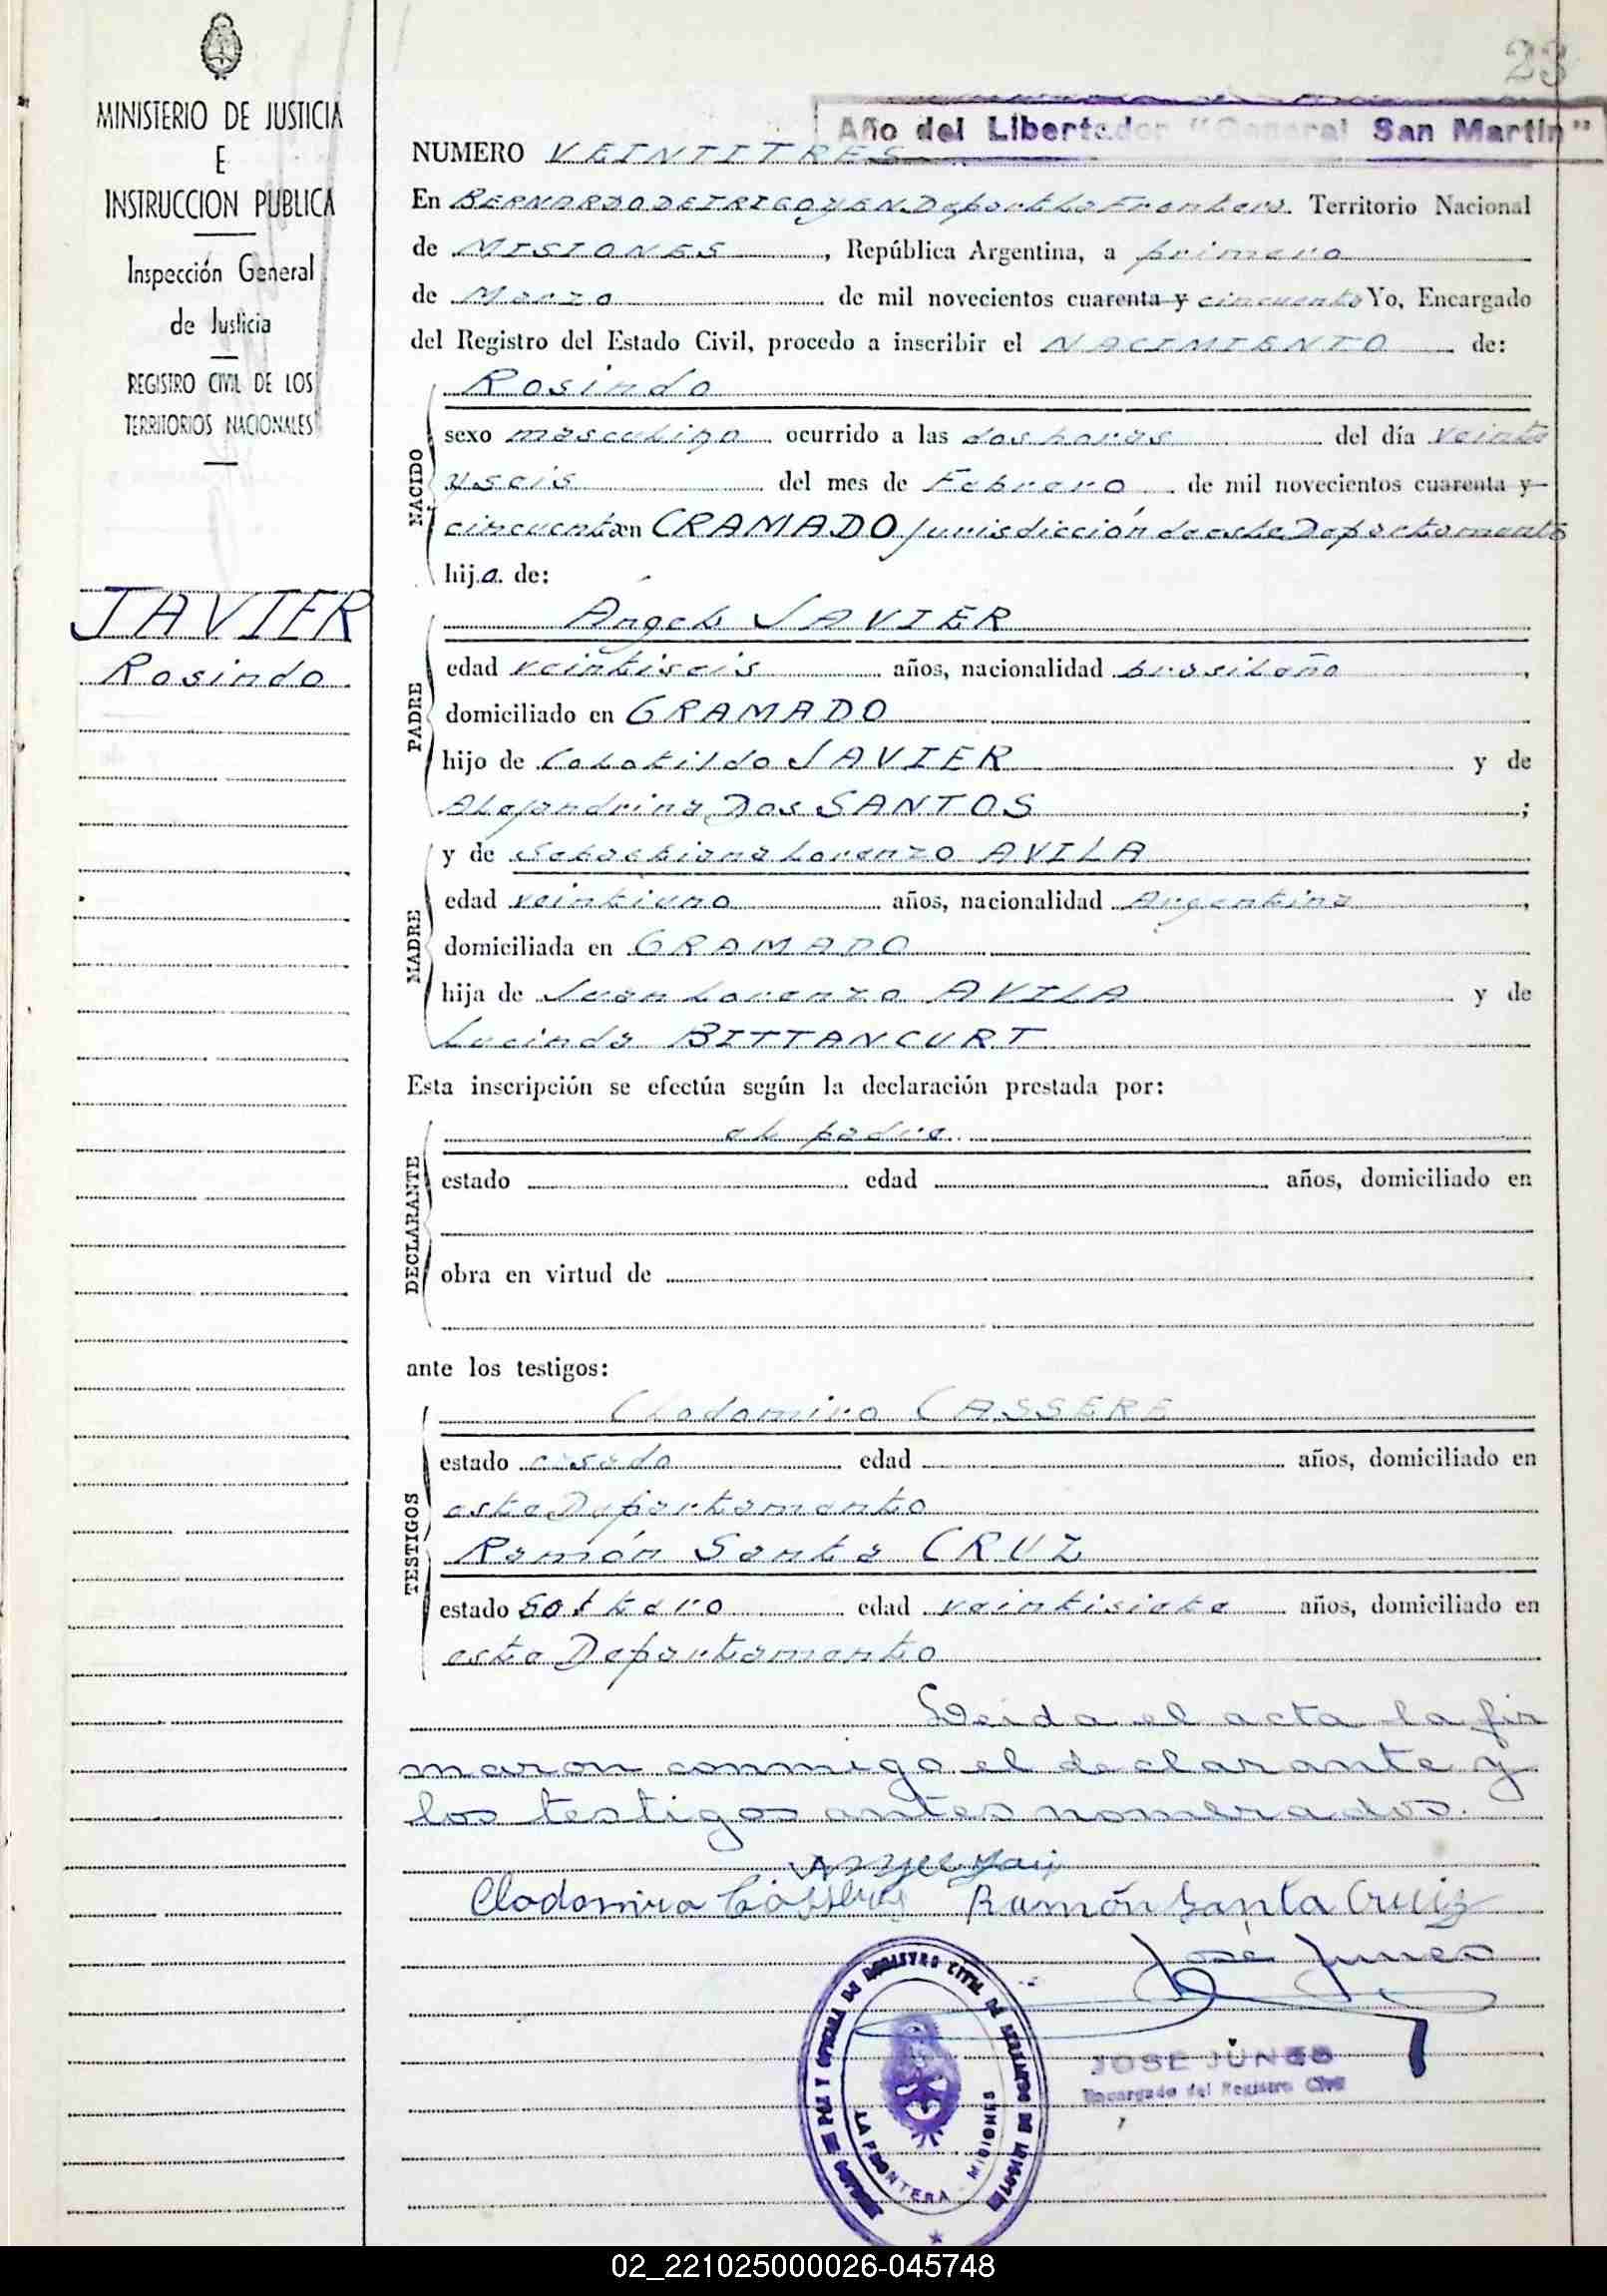 23
MINISTERIO DE JUSTICIA
E
INSTRUCCION PUBLICA
Inspección General
de Justicia
REGISTRO CIVIL DE LOS
TERRITORIOS NACIONALES
JAVIER
Rosindo
Año del Libertador "General San Martín"
NUMERO VEINTITRES
En BERNARDO DE IRIGOYEN Depart La Frontera. Territorio Nacional
de MISIONES, República Argentina, a primero
de Marzo de mil novecientos cuarenta y cincuenta Yo, Encargado
del Registro del Estado Civil, procedo a inscribir el NACIMIENTO de:
NACIDO
Rosindo
sexo masculino ocurrido a las dos horas del día veinte
y seis del mes de Febrero de mil novecientos cuarenta y
cincuenta en GRAMADO jurisdicción de este Departamento
hijo. de:
PADRE
Angel JAVIER
edad veintiseis años, nacionalidad brasileño,
domiciliado en GRAMADO
hijo de JAVIER y de
Alejandrina Dos SANTOS;
MADRE
y de Sebastiana Lorenzo AVILA
edad veintiuno años, nacionalidad Argentina,
domiciliada en GRAMADO
hija de Juan Lorenzo AVILA y de
Lucinda BITTANCURT
Esta inscripción se efectúa según la declaración prestada por:
DECLARANTE
el padre.
estado edad años, domiciliado en
obra en virtud de
ante los testigos:
TESTIGOS
Clodomiro CASSERE
estado casado edad años, domiciliado en
este Departamento
Ramón Santa CRUZ
estado soltero edad veintisiete años, domiciliado en
este Departamento
Leida el acta la fir
maron conmigo el declarante y
los testigos antes nomerados.
Clodomiro Ramón Santa Cruiz
José Junes
JUZGADO DE PAZ Y OFICINA DE REGISTRO CIVIL DE BERNARDO DE IRIGOYEN
LA FRONTERA - MISIONES
JOSE JUNES
Encargado del Registro Civil
02_221025000026-045748